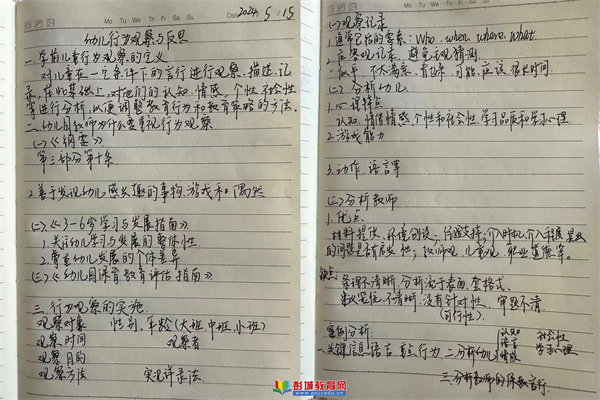 Mo Tu We Th Fr Sa Su
Date 2024. 5. 15
幼儿行为观察与反思
一、学前儿童行为观察的定义
对儿童在一定条件下的言行进行观察、描述、记
录,在此基础上,对他们的认知、情感、个性和社会性
等进行分析,以便调整教育行为和教育策略的方法。
二、幼儿园教师为什么要重视行为观察
(一)《纲要》
第三部分第十条
2.善于发现幼儿感兴趣的事物、游戏和偶然
(二)《3-6岁学习与发展指南》
1.关注幼儿学习与发展的整体性.
2.尊重幼儿发展的个体差异
(三)《幼儿园保育教育评估指南》
三、行为观察的实施
观察对象 性别,年龄(大班 中班、小班)
观察时间 观察者
观察目的
观察方法 实况详录法.
Mo Tu We Th Fr Sa Su
(一)观察记录
1.通常包括的要素:Who. when. where. what.
2.应客观记录,避免主观猜测
似乎、不太满意、有趣、可能、应该、很长时间
(二)分析幼儿
1.心理特点
认知、情绪情感、个性和社会性、学习品质和学习心理
2.游戏能力
3.动作、语言等
(三)分析教师
1.优点
材料提供、环境创设;介入时机,介入程度
的问题是否有启发性;教师观、儿童观、职业道德等。
缺点:
条理不清晰,分析流于表面,套格式.
不清晰,没有针对性、审题不清
(可行性)
案例分析
一、关键信息 语言 重点行为 二、分析幼儿
认知
语言
情感
社会性
学习心理
三、分析教师的保教言行.
彭城教育网
www.pcjyedu.cn